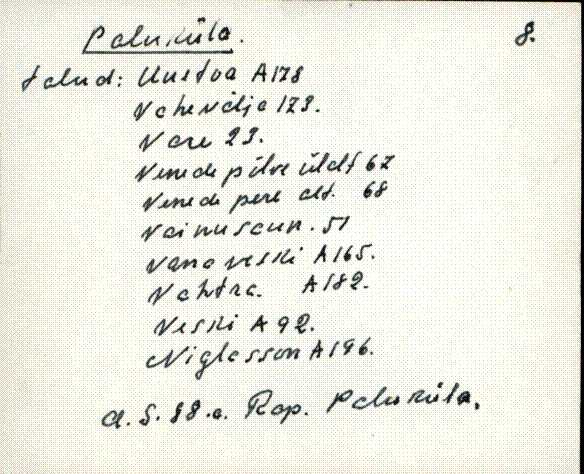 Paluküla. 8.
talud: Uuetoa A178
Vahevälja 173.
Vare 23.
Venede pilve üldt 67
Venede pere alt. 68
Vainu saun. 51
Vanaveski A165.
Vahtra. A182.
Veski A92.
Niglasson A196.
A. S. 88. a. Rap. Paluküla.